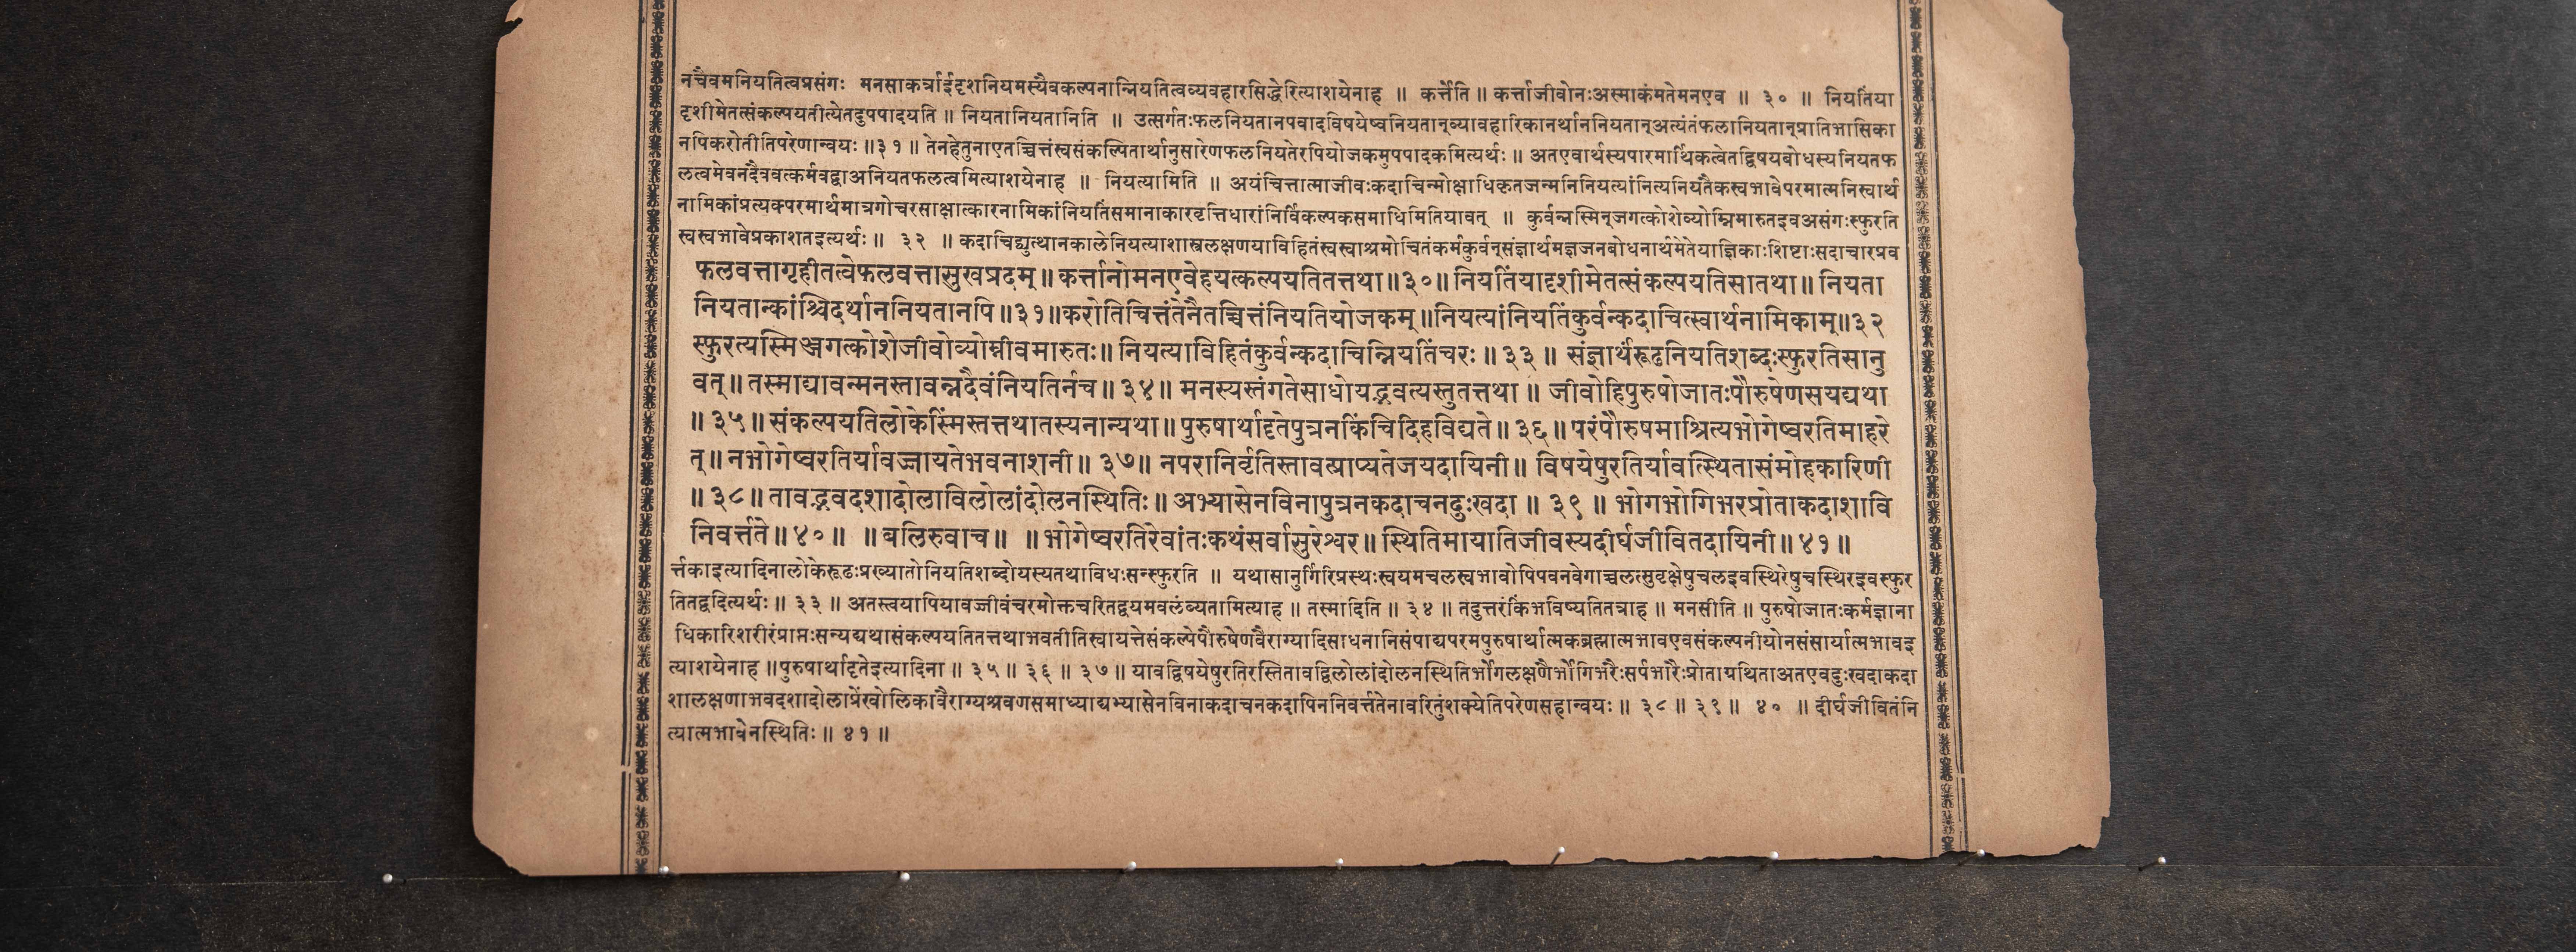 नचैवमनियतित्वप्रसंगः मनसाकर्त्राईदृशनियमस्यैवकल्पनान्नियतित्वव्यवहारसिद्धेरित्याशयेनाह ॥ कर्त्तेति ॥ कर्त्ताजीवोनःअस्माकंमतेमनएव ॥ ३० ॥ नियतिंया
दृशीमेतत्संकल्पयतीत्येतदुपपादयति ॥ नियतानियतानिति ॥ उत्सर्गतःफलनियतानपवादविषयेष्वनियतान्व्यावहारिकानर्थाननियतान्अत्यंतंफलानियतान्प्रातिभासिका
नपिकरोतीतिपरेणान्वयः ॥३१॥ तेनहेतुनाएतच्चित्तंस्वसंकल्पितार्थानुसारेणफलनियतेरपियोजकमुपपादकमित्यर्थः ॥ अतएवार्थस्यपारमार्थिकत्वेतद्विषयबोधस्यनियतफ
लत्वमेवनदैववत्कर्मवद्वाअनियतफलत्वमित्याशयेनाह ॥ नियत्यामिति ॥ अयंचित्तात्माजीवःकदाचिन्मोक्षाधिकृतजन्मनिनियत्यांनित्यनियतैकस्वभावेपरमात्मनिस्वार्थ
नामिकांप्रत्यक्परमार्थमात्रगोचरसाक्षात्कारनामिकांनियतिंसमानाकारवृत्तिधारांनिर्विकल्पकसमाधिमितियावत् ॥ कुर्वन्नस्मिन्जगत्कोशेव्योम्निमारुतइवअसंगःस्फुरति
स्वस्वभावेप्रकाशतइत्यर्थः ॥ ३२ ॥ कदाचिद्व्युत्थानकालेनियत्याशास्त्रलक्षणयाविहितंस्वस्वाश्रमोचितंकर्मकुर्वन्संज्ञार्थमज्ञजनबोधनार्थमेतेयाज्ञिकाःशिष्टाःसदाचारप्रव
फलवत्तागृहीतत्वेफलवत्तासुखप्रदम् ॥ कर्त्तानोमनएवेहयत्कल्पयतितत्तथा ॥३०॥ नियतिंयादृशीमेतत्संकल्पयतिसातथा ॥ नियता
नियतान्कांश्चिदर्थाननियतानपि ॥३१॥करोतिचित्तंतेनैतच्चित्तंनियतियोजकम् ॥नियत्यांनियतिंकुर्वन्कदाचित्स्वार्थनामिकाम्॥३२
स्फुरत्यस्मिञ्जगत्कोशेजीवोव्योम्नीवमारुतः॥ नियत्याविहितंकुर्वन्कदाचिन्नियतिंचरः ॥ ३३ ॥ संज्ञार्थंरूढनियतिशब्दःस्फुरतिसानु
वत् ॥ तस्माद्यावन्मनस्तावन्नदैवंनियतिर्नच ॥ ३४ ॥ मनस्यस्तंगतेसाधोयद्भवत्यस्तुतत्तथा ॥ जीवोहिपुरुषोजातःपौरुषेणसयद्यथा
॥ ३५ ॥ संकल्पयतिलोकेस्मिंस्तत्तथातस्यनान्यथा ॥ पुरुषार्थादृतेपुत्रनकिंचिदिहविद्यते ॥ ३६ ॥ परंपौरुषमाश्रित्यभोगेष्वरतिमाहरे
त् ॥ नभोगेष्वरतिर्यावज्जायतेभवनाशनी ॥ ३७ ॥ नपरानिर्वृतिस्तावत्प्राप्यतेजयदायिनी ॥ विषयेषुरतिर्यावत्स्थितासंमोहकारिणी
॥ ३८ ॥ तावद्भवदशादोलाविलोलांदोलनस्थितिः ॥ अभ्यासेनविनापुत्रनकदाचनदुःखदा ॥ ३९ ॥ भोगभोगिभरप्रोताकदाशावि
निवर्त्तते ॥ ४० ॥ ॥ बलिरुवाच ॥ ॥ भोगेष्वरतिरेवांतःकथंसर्वासुरेश्वर ॥ स्थितिमायातिजीवस्यदीर्घजीवितदायिनी ॥ ४१ ॥
र्त्तकाइत्यादिनालोकेरूढःप्रख्यातोनियतिशब्दोयस्यतथाविधःसन्स्फुरति ॥ यथासानुर्गिरिप्रस्थःस्वयमचलस्वभावोपिपवनवेगाच्चलत्सुवृक्षेषुचलइवस्थिरेषुचस्थिरइवस्फुर
तितद्वदित्यर्थः ॥ ३३ ॥ अतस्त्वयापियावज्जीवंचरमोक्तचरितद्वयमवलंब्यतामित्याह ॥ तस्मादिति ॥ ३४ ॥ तदुत्तरंकिंभविष्यतितत्राह ॥ मनसीति ॥ पुरुषोजातःकर्मज्ञाना
धिकारिशरीरंप्राप्तःसन्यद्यथासंकल्पयतितत्तथाभवतीतिस्वायत्तेसंकल्पेपौरुषेणवैराग्यादिसाधनानिसंपाद्यपरमपुरुषार्थात्मकब्रह्मात्मभावएवसंकल्पनीयोनसंसार्यात्मभावइ
त्याशयेनाह ॥पुरुषार्थादृतेइत्यादिना ॥ ३५ ॥ ३६ ॥ ३७ ॥ यावद्विषयेषुरतिरस्तितावद्विलोलांदोलनस्थितिर्भोगलक्षणैर्भोगिभरैःसर्पभारैःप्रोताग्रथिताअतएवदुःखदाकदा
शालक्षणाभवदशादोलाप्रेंखोलिकावैराग्यश्रवणसमाध्याद्यभ्यासेनविनाकदाचनकदापिननिवर्त्ततेनावरितुंशक्येतिपरेणसहान्वयः ॥ ३८ ॥ ३९ ॥ ४० ॥ दीर्घजीवितंनि
त्यात्मभावेनस्थितिः ॥ ४१ ॥